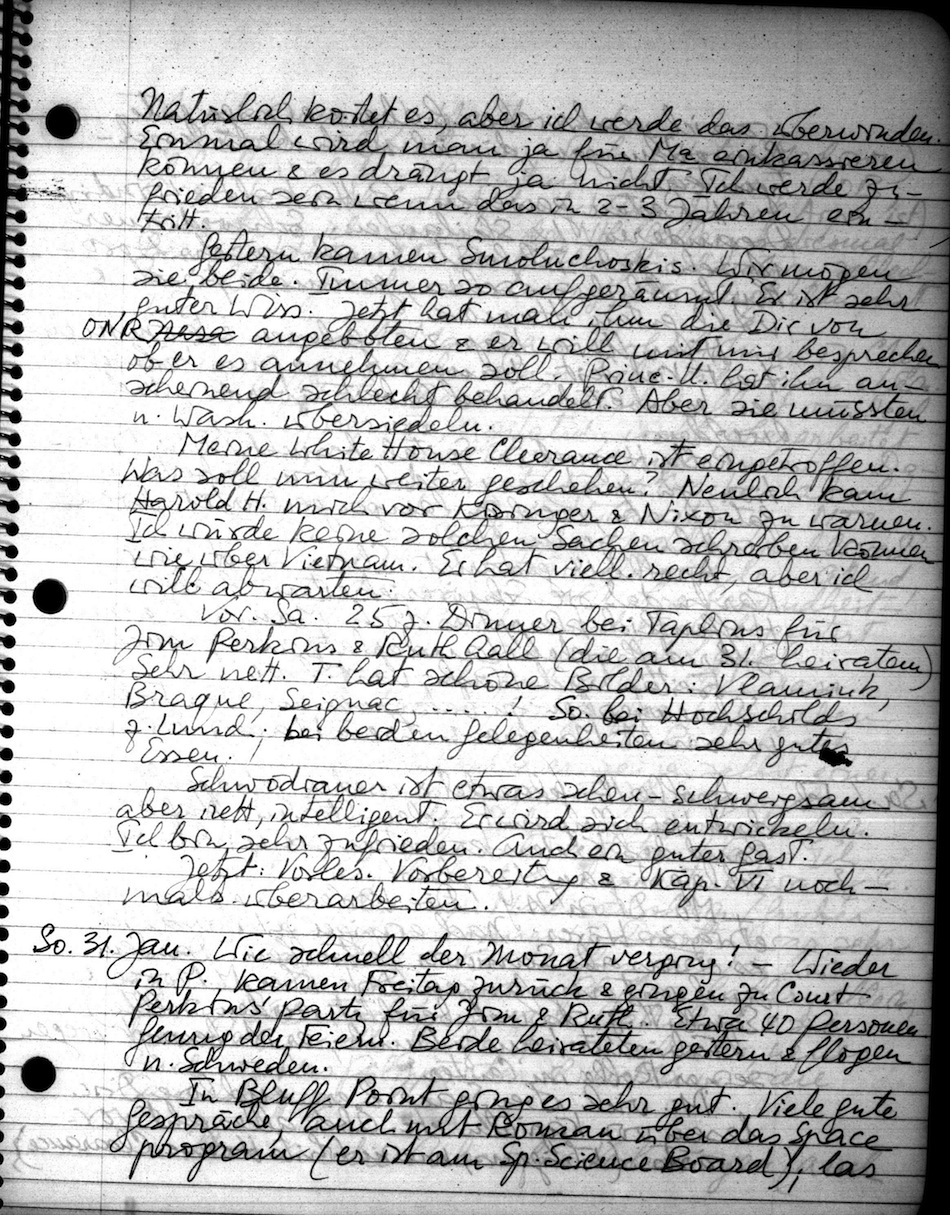 Natürlich kostet es, aber ich werde das überwinden.
Einmal wird man ja für Ma einkassieren
können & es drängt ja nicht. Ich werde zu-
frieden sein wenn das in 2-3 Jahren ein-
tritt.
Gestern kamen Smoluchoskis. Wir mögen
sie beide. Immer so aufgeräumt. Er ist sehr
guter Wiss. Jetzt hat man ihm die Dir von
ONR angeboten & er will mit mir besprechen
ob er es annehmen soll. Princ. U. hat ihn an-
scheinend schlecht behandelt. Aber sie müssten
n. Wash. übersiedeln.
Meine White House Clearance ist eingetroffen.
Was soll nun weiter geschehen? Neulich kam
Harold H. mich vor Kissinger & Nixon zu warnen.
Ich würde keine solchen Sachen schreiben können
wie über Vietnam. Er hat viell. recht, aber ich
will abwarten.
Vor. Sa. 25 J. Dinner bei Taplins für
Jim Perkins & Ruth Aall (die am 31. heiraten)
Sehr nett. T. hat schöne Bilder: Vlamink,
Braque, Seignac, ......! So. bei Hochschilds
z. Lunch; bei beiden Gelegenheiten sehr gutes
Essen.
Schwodiauer ist etwas scheu-schweigsam
aber nett, intelligent. Er wird sich entwickeln.
Ich bin sehr zufrieden. Auch ein guter Gast.
Jetzt: Vorles. Vorbereitg & Kap. VI noch-
mals überarbeiten.
So. 31. Jan. Wie schnell der Monat verging! - Wieder
in P. Kamen Freitag zurück & gingen zu Court
Perkins' party für Jim & Ruth. Etwa 40 Personen
genug der Feiern. Beide heirateten gestern & flogen
n. Schweden.
In Bluff Point ging es sehr gut. Viele gute
Gespräche auch mit Roman über das Space
program (er ist am Sp. Science Board), las